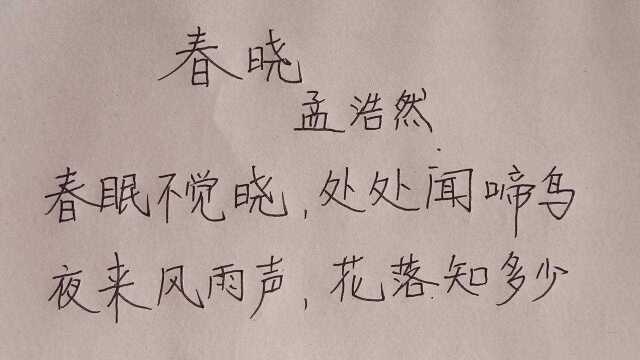 春晓
孟浩然
春眠不觉晓,处处闻啼鸟
夜来风雨声,花落知多少